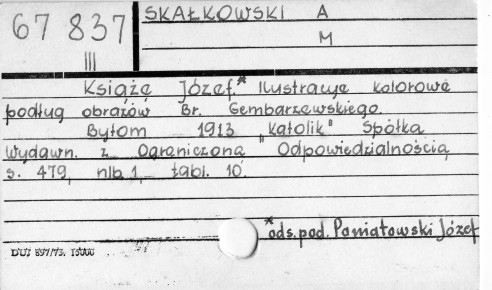 67 837
III
SKAŁKOWSKI A
M
Książę Józef.* Ilustracje kolorowe
podług obrazów Br. Gembarzewskiego.
Bytom 1913 „Katolik" Spółka
Wydawn. z Ograniczoną Odpowiedzialnością
s. 479, nlb. 1, tabl. 10.
*ods. pod. Poniatowski Józef